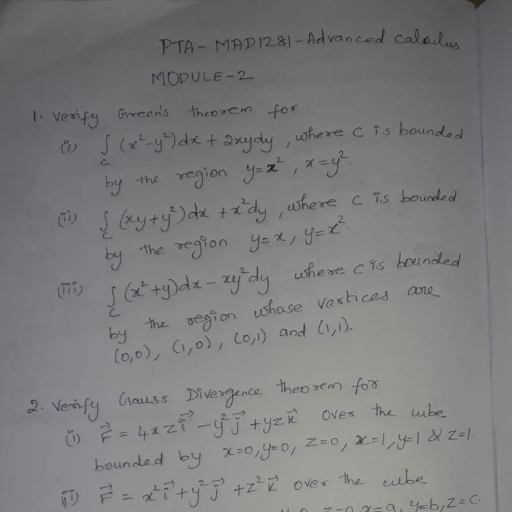 PTA - MAD1281 - Advanced calculus
MODULE-2
1. Verify Green's theorem for
(i) ∫_C (x²-y²)dx + 2xydy, where C is bounded
by the region y=x², x=y².
(ii) ∫_C (xy+y²)dx + x²dy, where C is bounded
by the region y=x, y=x².
(iii) ∫_C (x²+y)dx - xy²dy where C is bounded
by the region whose vertices are
(0,0), (1,0), (0,1) and (1,1).
2. Verify Gauss Divergence theorem for
(i) F⃗ = 4xz i⃗ - y² j⃗ + yz k⃗ over the cube
bounded by x=0, y=0, z=0, x=1, y=1 & z=1.
(ii) F⃗ = x² i⃗ + y² j⃗ + z² k⃗ over the cube
z=0, x=a, y=b, z=c.